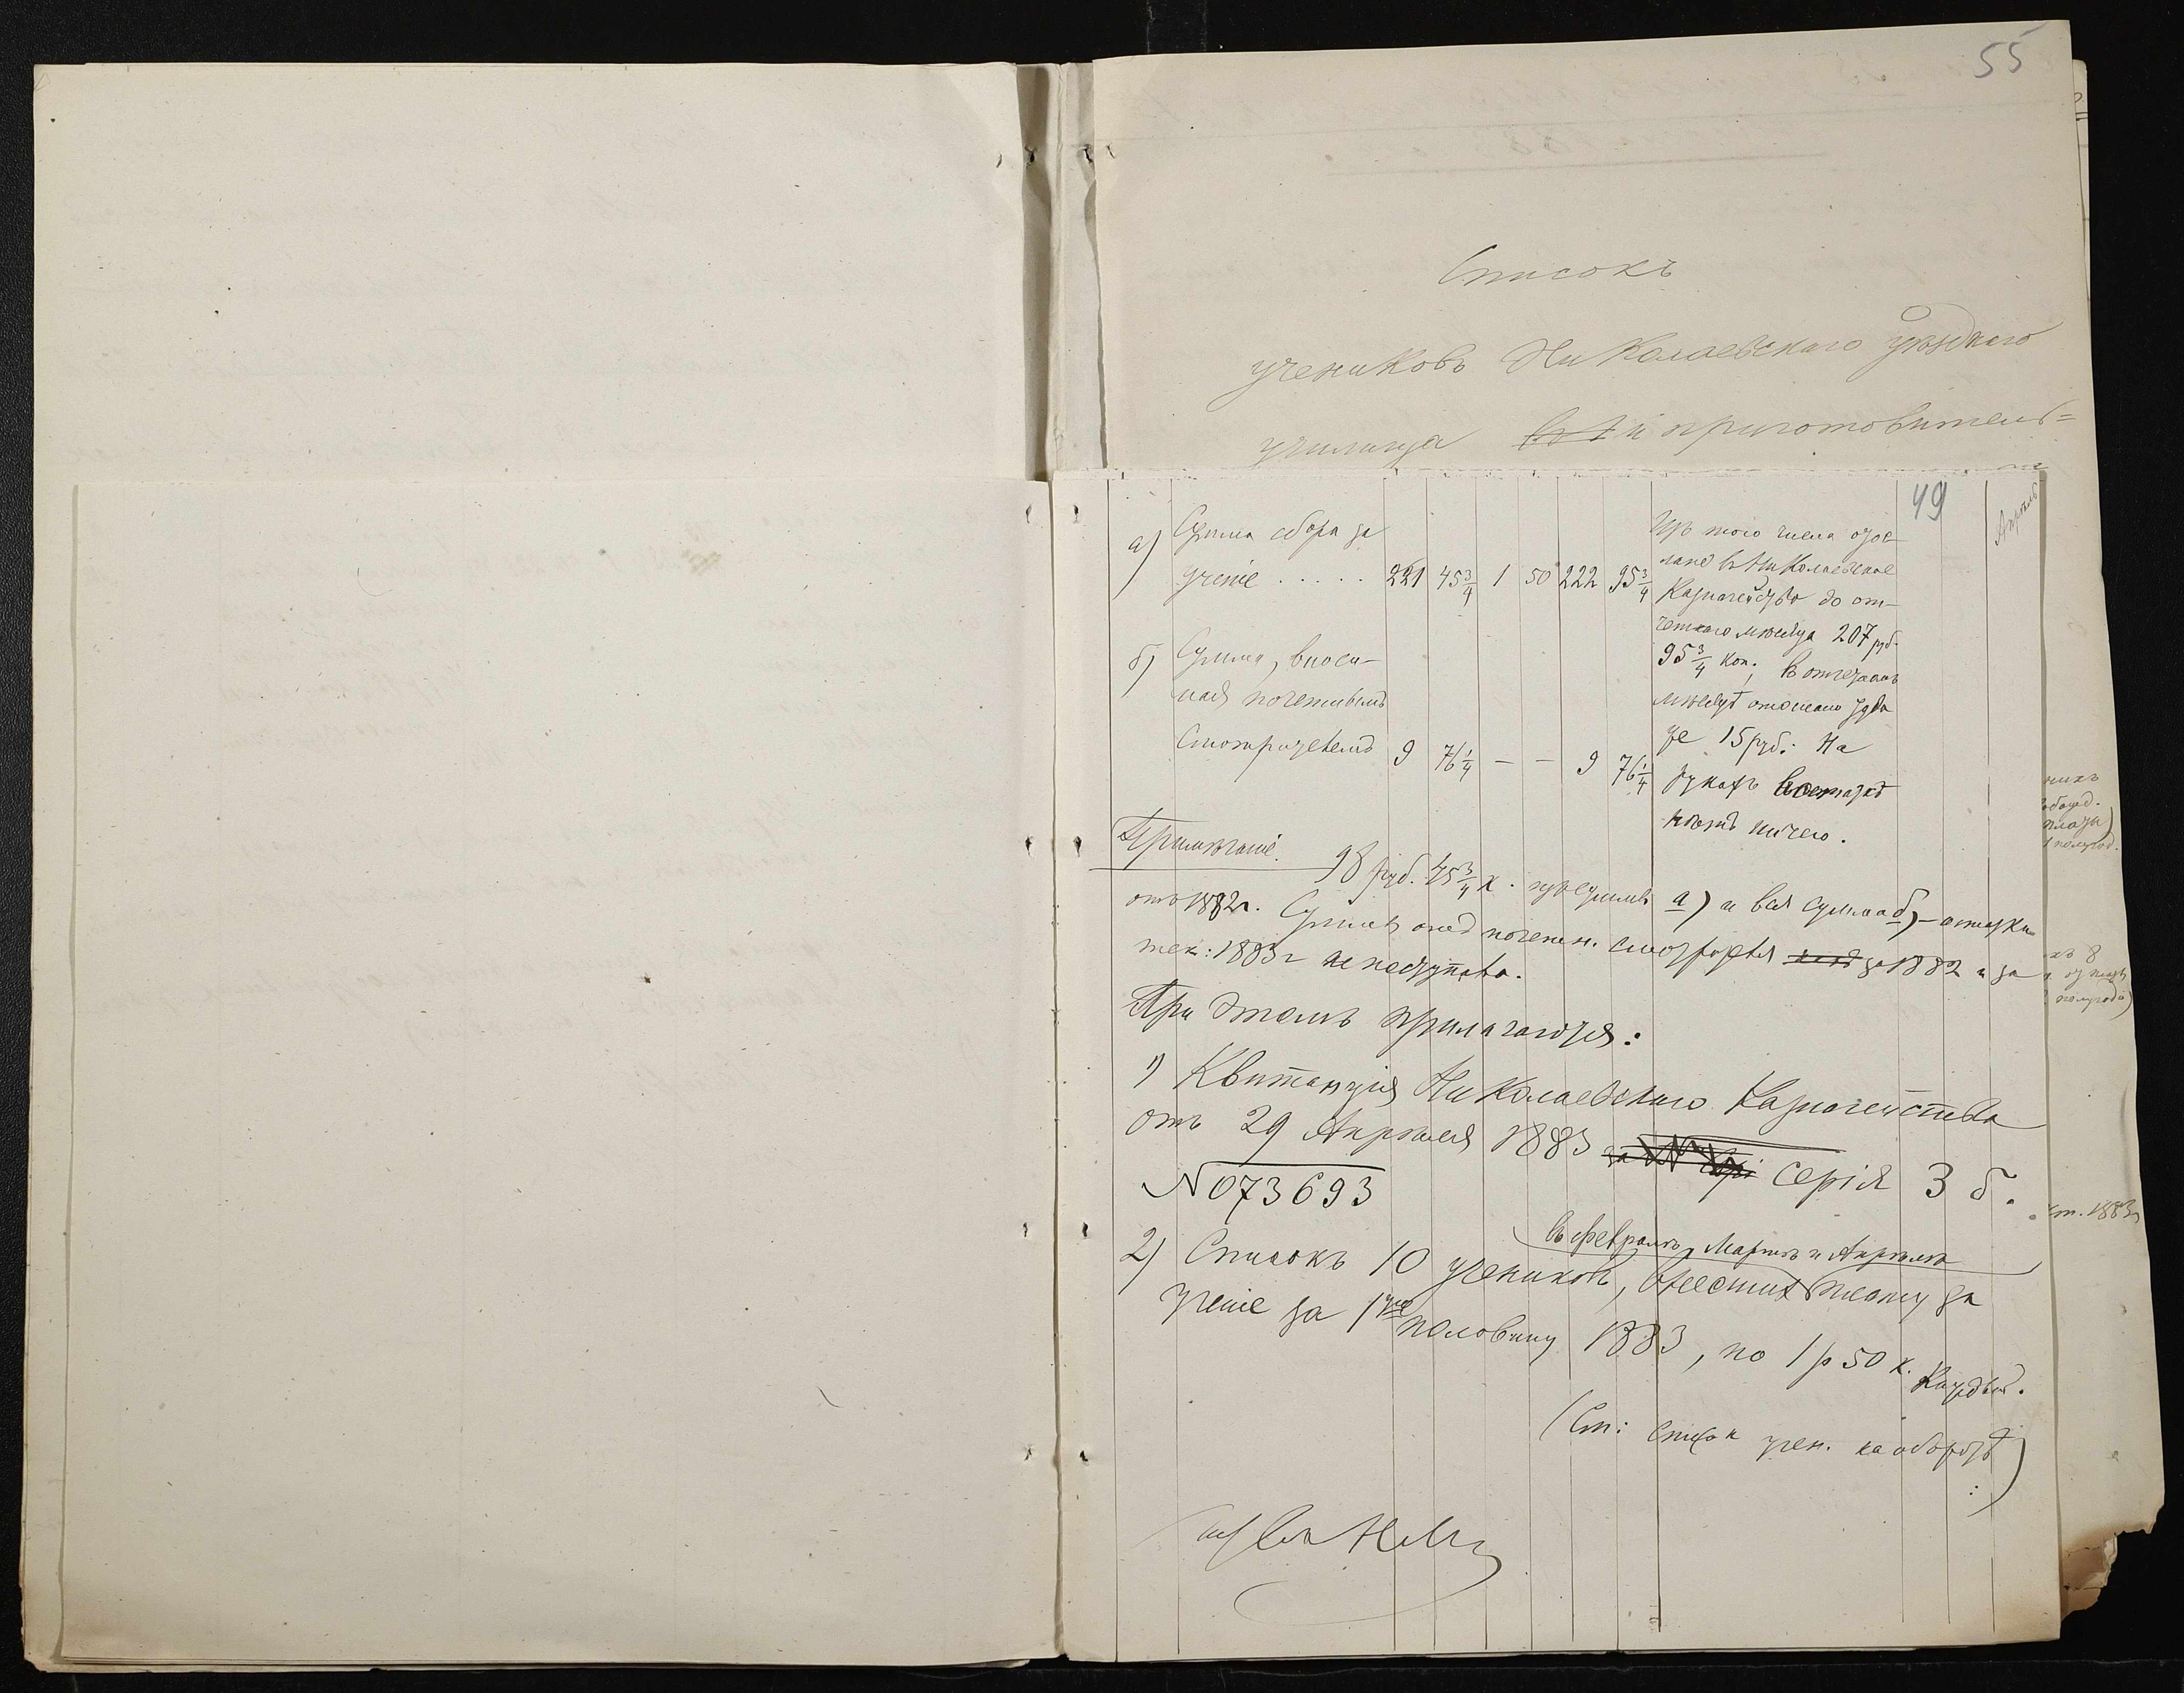 55
Списокъ
учениковъ Николаевскаго уѣзднаго
училища и приготовитель=
49
Апрѣль
а) Сумма сбора за
ученіе ..... 221 45 3/4 1 50 222 95 3/4
б) Сумма, вноси-
мая почетнымъ
Смотрителемъ 9 76 1/4 — — 9 76 1/4
Изъ того числа отос-
лано въ Николаевское
Казначейство до от-
четнаго мѣсяца 207 руб.
95 3/4 коп.; въ отчетномъ
мѣсяцѣ отослано туда
же 15 руб. На
рукахъ
нѣтъ ничего.
Примѣчаніе. 98 руб. 45 3/4 к. изъ суммы а) и вся сумма б) — остатки
отъ 1882 г. Суммъ отъ почетн. смотрителя за 1882 и за
тек: 1883 г не поступало.
При этомъ прилагаются:
1) Квитанція Николаевскаго Казначейства
отъ 29 Апрѣля 1883 серія З б.
N073693
въ Февралѣ, Мартѣ и Апрѣлѣ
2) Списокъ 10 учениковъ, внесшихъ плату за
ученіе за 1ую половину 1883, по 1 р 50 к. Каждый.
(См: списокъ учен. на оборотѣ)
1883